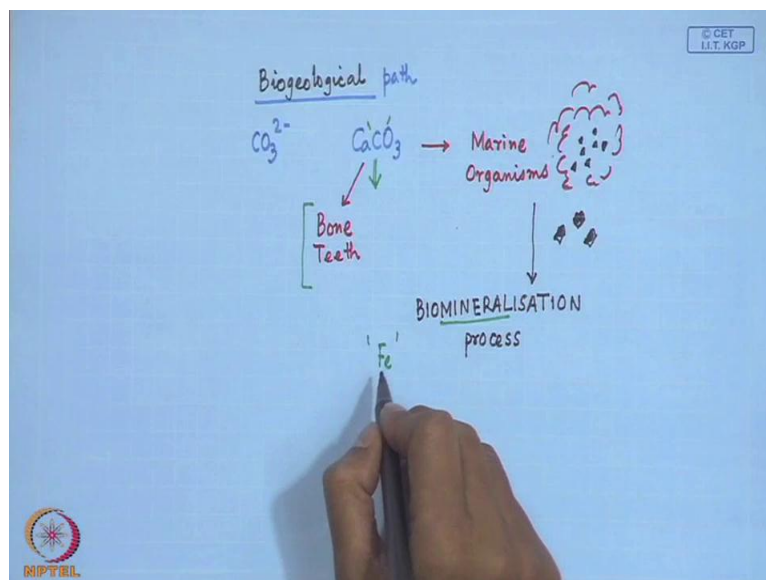 © CET
I.I.T. KGP
Biogeological path
CO₃²⁻ CaCO₃ → Marine
Organisms
Bone
Teeth
BIOMINERALISATION
process
'Fe'
NPTEL